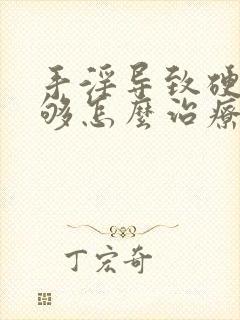 手淫导致硬
够怎麽治疗
丁宏奇